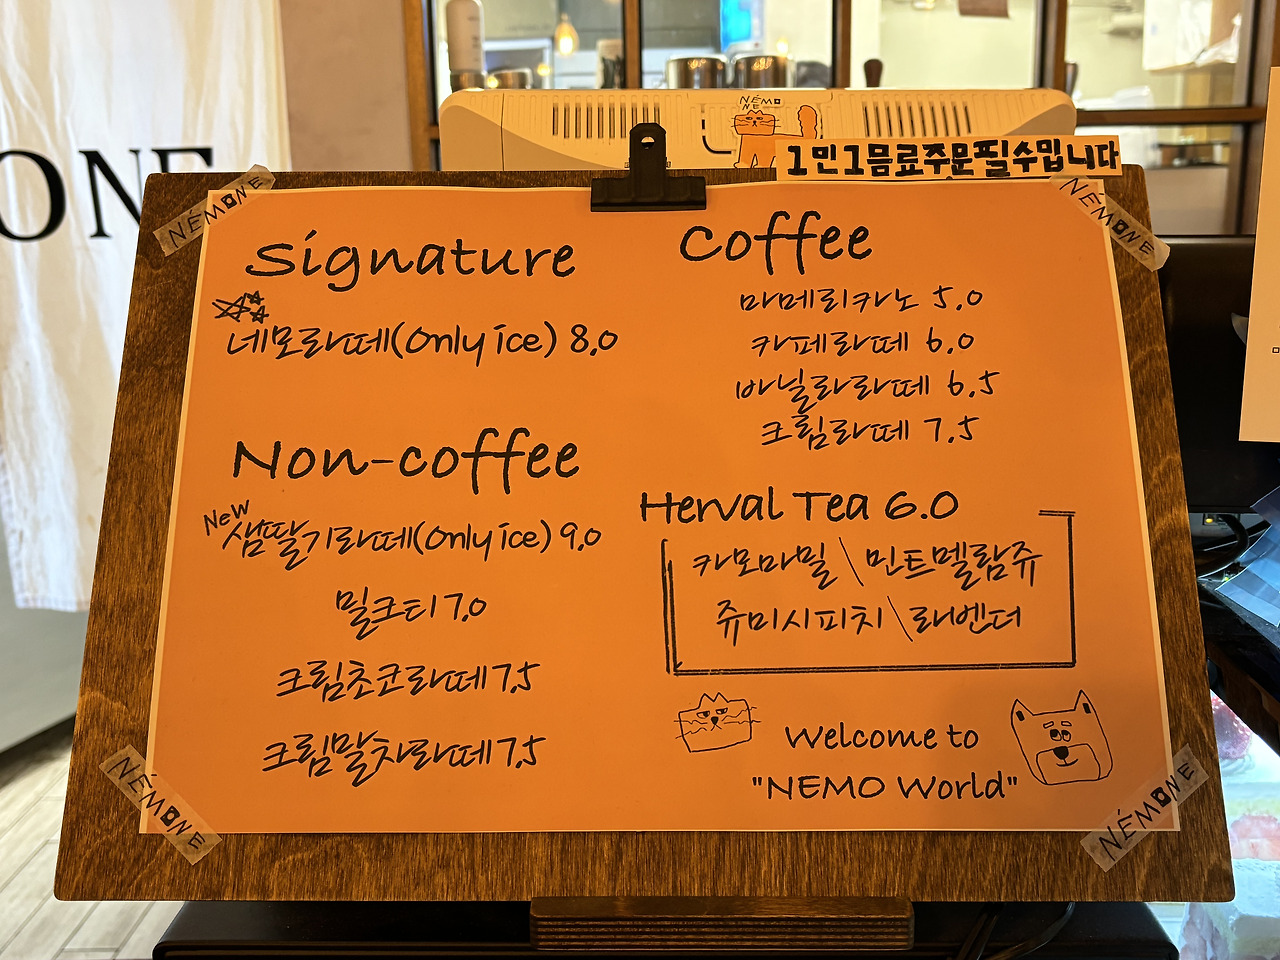 ONE
NÉMO
NE
1인1음료주문필수입니다
NÉMONE
NÉMONE
Signature
네모라떼(Only ice) 8.0
Non-coffee
New
생딸기라떼(Only ice) 9.0
밀크티 7.0
크림초코라떼 7.5
크림말차라떼 7.5
Coffee
아메리카노 5.0
카페라떼 6.0
바닐라라떼 6.5
크림라떼 7.5
Herval Tea 6.0
카모마밀 \ 민트멜람쥬
쥬미시피치 \ 라벤더
Welcome to
"NEMO World"
NÉMONE
NÉMONE